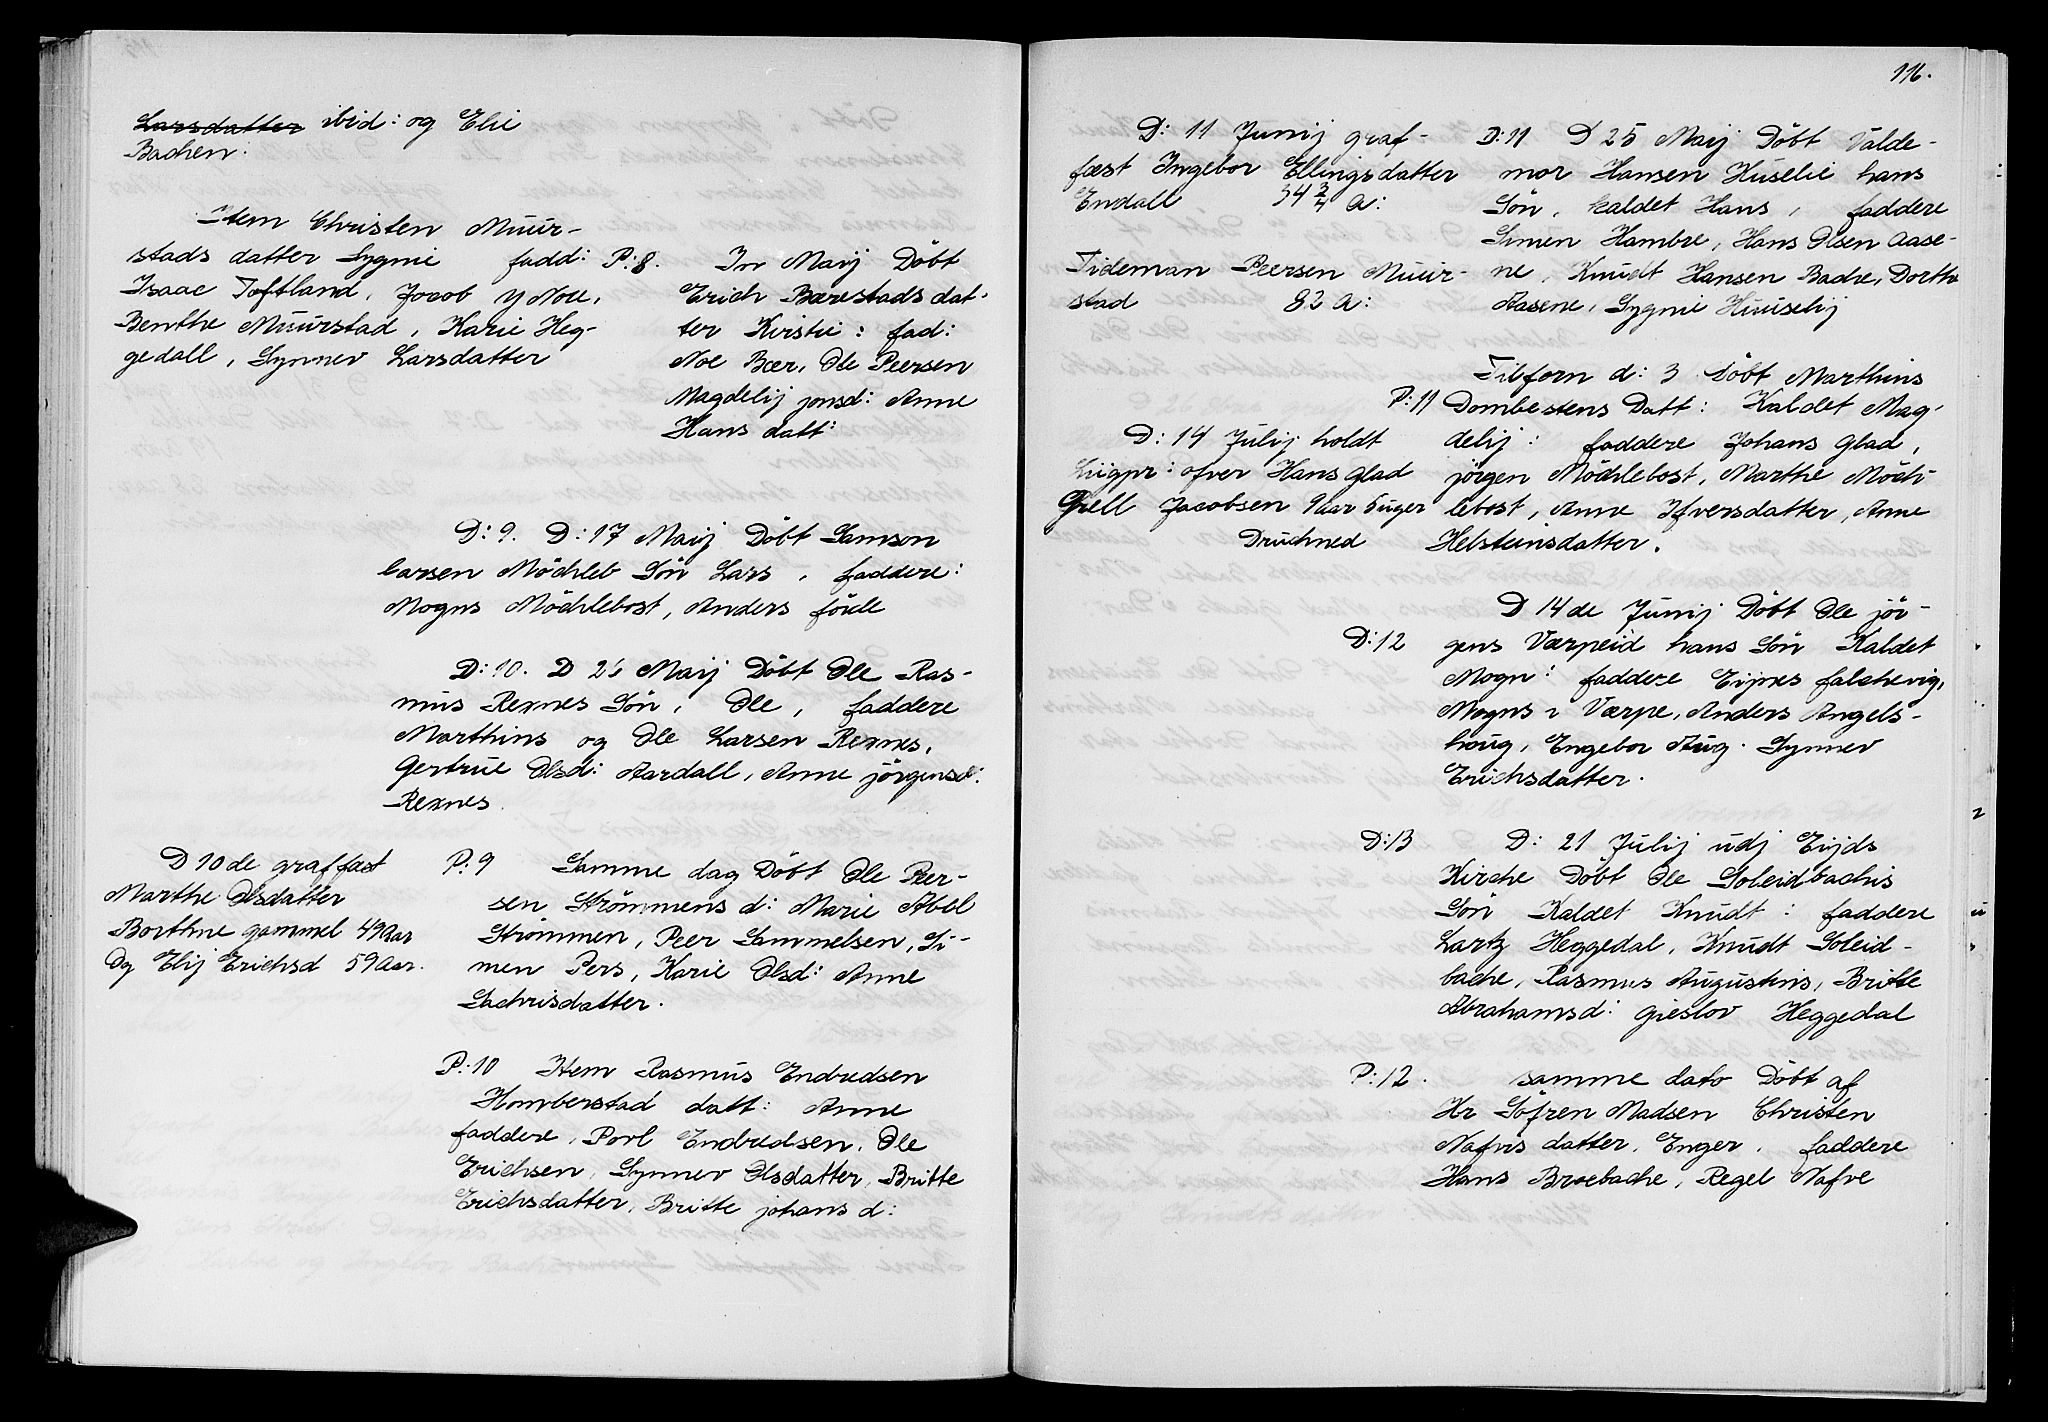 Larsdatter ibid: og Elie
Bachen:
Item Christen Muur-
stads datter Sygnie fadd:
Isaac Toftland, Jocob
Benthe Muurstad, Karie Heg-
gedall, Synnev Larsdatter
P:8. In Maij Döbt
Erich Bærestads dat-
ter Kirstie: fad:
Noe Bær, Ole Peersen
Magdelij jonsd: Anne
Hans datt:
D:9. D:17 Maij Döbt Samson
Larsen Möchleb Sön Lars, faddere:
Mogns Möchlebost, Anders
D:10. D 25 Maij Döbt Ole Ras-
mus Rexnes Sön, Ole, faddere
Marthins og Ole Larsen Rexnes,
Gertrue Olsd: Aardall, Anne jörgensd:
Rexnes.
D 10de graffæst
Marthe Olsdatter
Borthne gammel 49 Aar
Og Elij Erichsd 59 Aar.
P:9 Samme dag Döbt Ole Peer-
sen Strömmens d: Marie Abel
Strömmen, Peer Sammelsen, Si-
men Pers, Karie Olsd: Anne
Sachrisdatter.
P:10 Item Rasmus Endredsen
Homberstad datt: Anne
faddere, Povl Endredsen, Ole
Erichsen, Synnev Olsdatter, Britte
Erichsdatter, Britte johans d:
116.
D: 11 Junij graf-
fæst Ingebor Ellingsdatter
Endall 34 3/4 A:
Tideman Peersen Muur-
stad 82 A:
D: 14 Julij holdt
Liigpr: ofver Hans Glad
Grell Jacobsen 9 aar 6 uger
Druchned
D:11 D 25 Maij Döbt Valde-
mor Hansen Huselie hans
Sön, kaldet Hans, faddere
Simen Hambre, Hans Olsen Aase-
ne, Knudt Hansen Bache, Dorthe
Aasene, Sygnie Huuselij
Tilforn d: 3 Döbt Marthins
P:11 Dombestens Datt: Kaldet Mag-
delij: faddere Johans Glad,
jörgen Möchlebost, Marthe Möch-
lebost, Anne Ifversdatter, Anne
Helsteinsdatter.
D 14de Junij Döbt Ole jör-
D:12 gens Værpeid hans Sön Kaldet
Mogn: faddere Eijnes falchevig,
Mogns i Værpe, Anders Angels-
houg, Engebor Aug. Synnev
Erichsdatter.
D:13 D: 21 Julij udj Eijds
Kirche Döbt Ole Soleidbachis
Sön Kaldet Knudt: faddere
Lartz Heggedal, Knudt Soleid-
bache, Rasmus Augustins, Britte
Abrahamsd: Gieslov Heggedal
P:12. samme dato Döbt af
Hr Söfren Madsen Christen
Nafvis datter, Enger, faddere
Hans Broebache, Regel Nafve